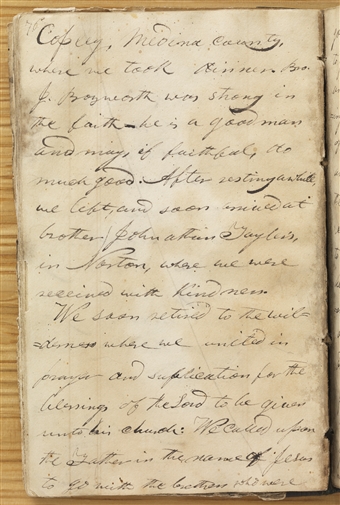 Copley, Medina county,
where we took dinner. Bro.
J. Bosworth was strong in
the faith—he is a good man
and may, if faithful, do
much good. After resting awhile,
we left, and soon arived at
brother Johnathan Taylors,
in Norton, where we were
received with kindness
We soon retired to the wil-
derness where we united in
prayer and suplication for the
blessings of the Lord to be given
unto his church: We called upon
the Father in the name of Jesus
to go with the brethren who were